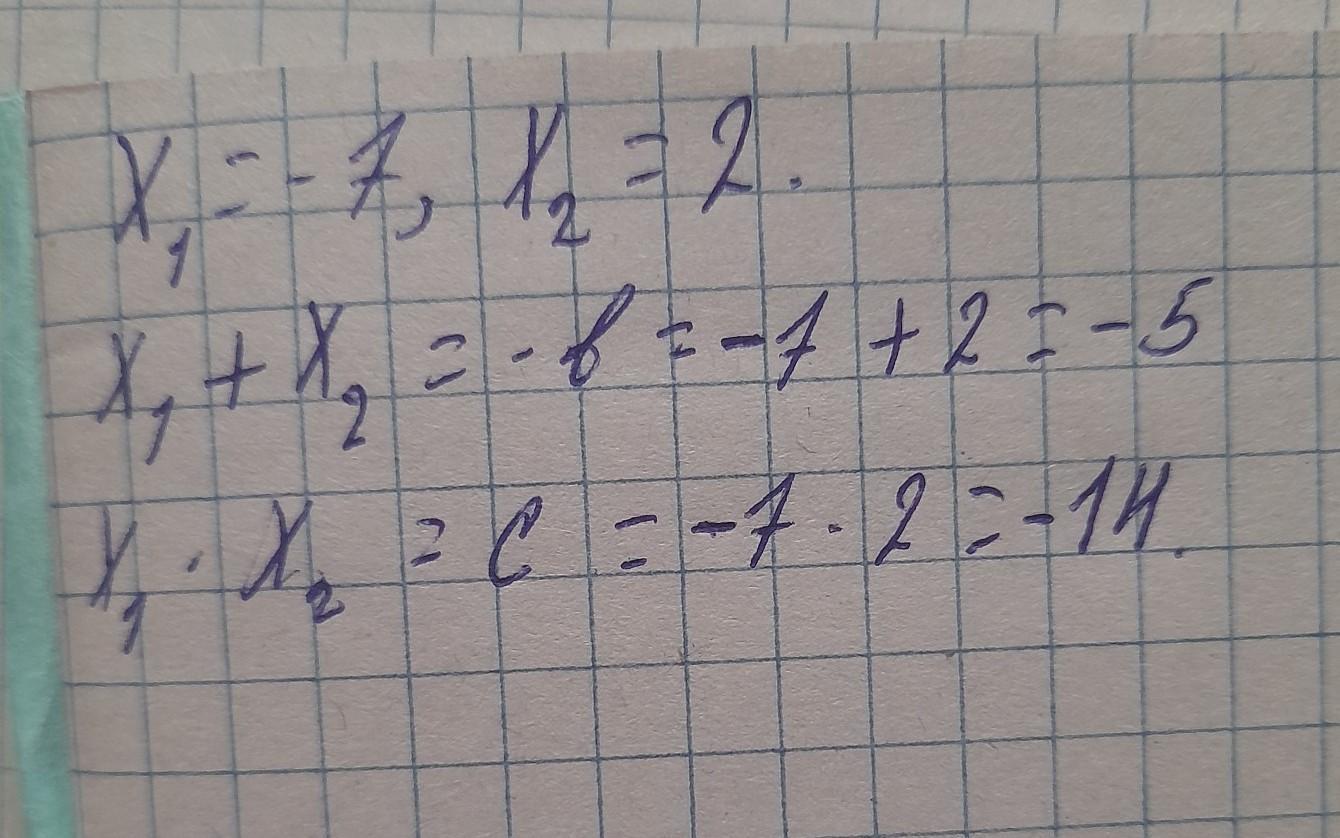 x₁ = -7, x₂ = 2.
x₁ + x₂ = -b = -7 + 2 = -5
x₁ · x₂ = c = -7 · 2 = -14.